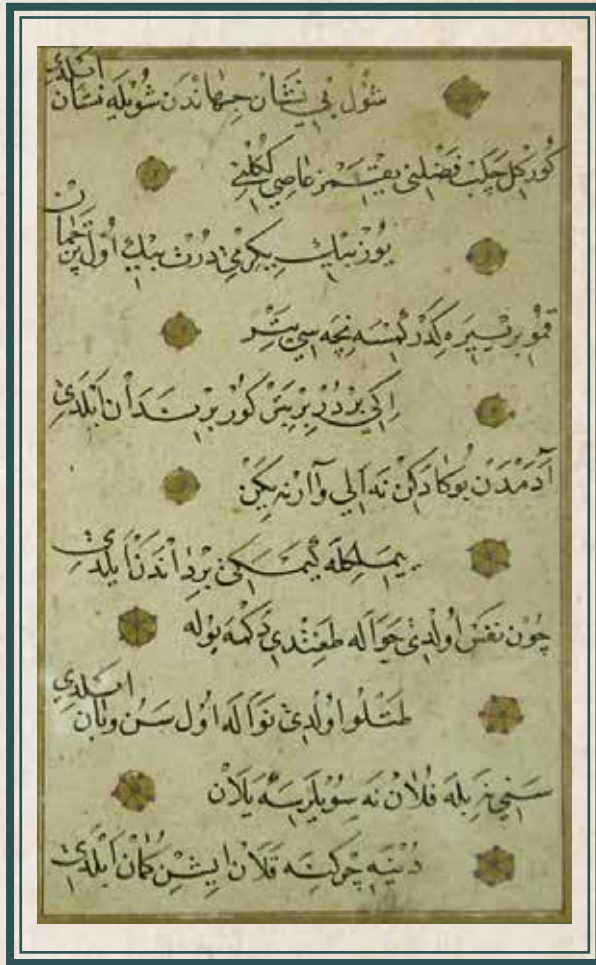 شول بي نشان جهاندن شويله نشان ايلدي
كور كل چلب فضلني يقمز عاصي كلني
يوز بيك يكرمي درت بيك اول ترجمان
قمو بر يره كدر كمسه نجه سي يتر
ايكي بر در بر بتن كور بر ندان ايلدي
آدمدن بوكا دكن نه الي وار نه يكن
ييملكله كيمكي بر داندن ايلدي
چون نفس اولدي حواله طعندي دكمه يوله
لمتلو اولدي نواله اول سن وبان ايلدي
سني نه بله فلان نه سويلرسه يلان
دنيه چركنه قلان ايشن كمان ايلدي